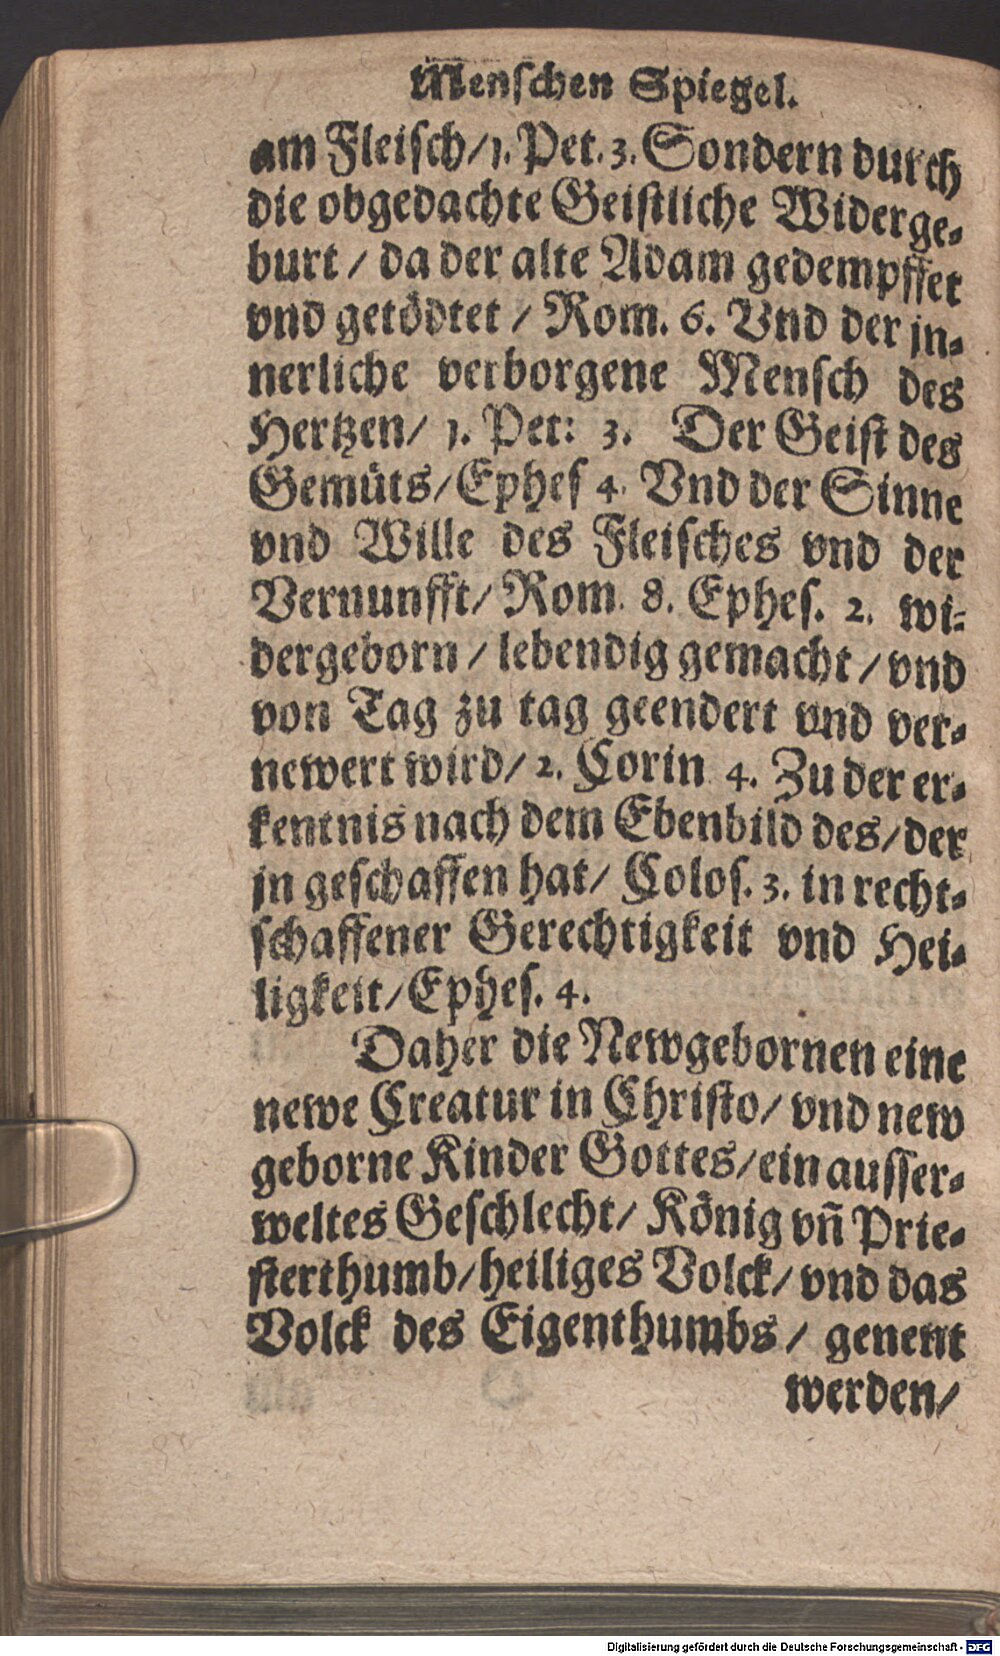 Menschen Spiegel.
am Fleisch/1. Pet. 3. Sondern durch
die obgedachte Geistliche Widerge-
burt / da der alte Adam gedempffet
vnd getödtet / Rom. 6. Vnd der jn-
nerliche verborgene Mensch des
Hertzen/ 1. Pet: 3. Der Geist des
Gemüts/Ephes 4. Vnd der Sinne
vnd Wille des Fleisches vnd der
Vernunfft/ Rom. 8. Ephes. 2. wi-
dergeborn / lebendig gemacht / vnd
von Tag zu tag geendert vnd ver-
newert wird/ 2. Corin 4. Zu der er-
kentnis nach dem Ebenbild des/der
jn geschaffen hat/ Colos. 3. in recht-
schaffener Gerechtigkeit vnd Hei-
ligkeit/Ephes. 4.
Daher die Newgebornen eine
newe Creatur in Christo/ vnd new
geborne Kinder Gottes/ein ausser-
weltes Geschlecht/ König vn̄ Prie-
sterthumb/heiliges Volck/ vnd das
Volck des Eigenthumbs / genent
werden/
Digitalisierung gefördert durch die Deutsche Forschungsgemeinschaft - DFG